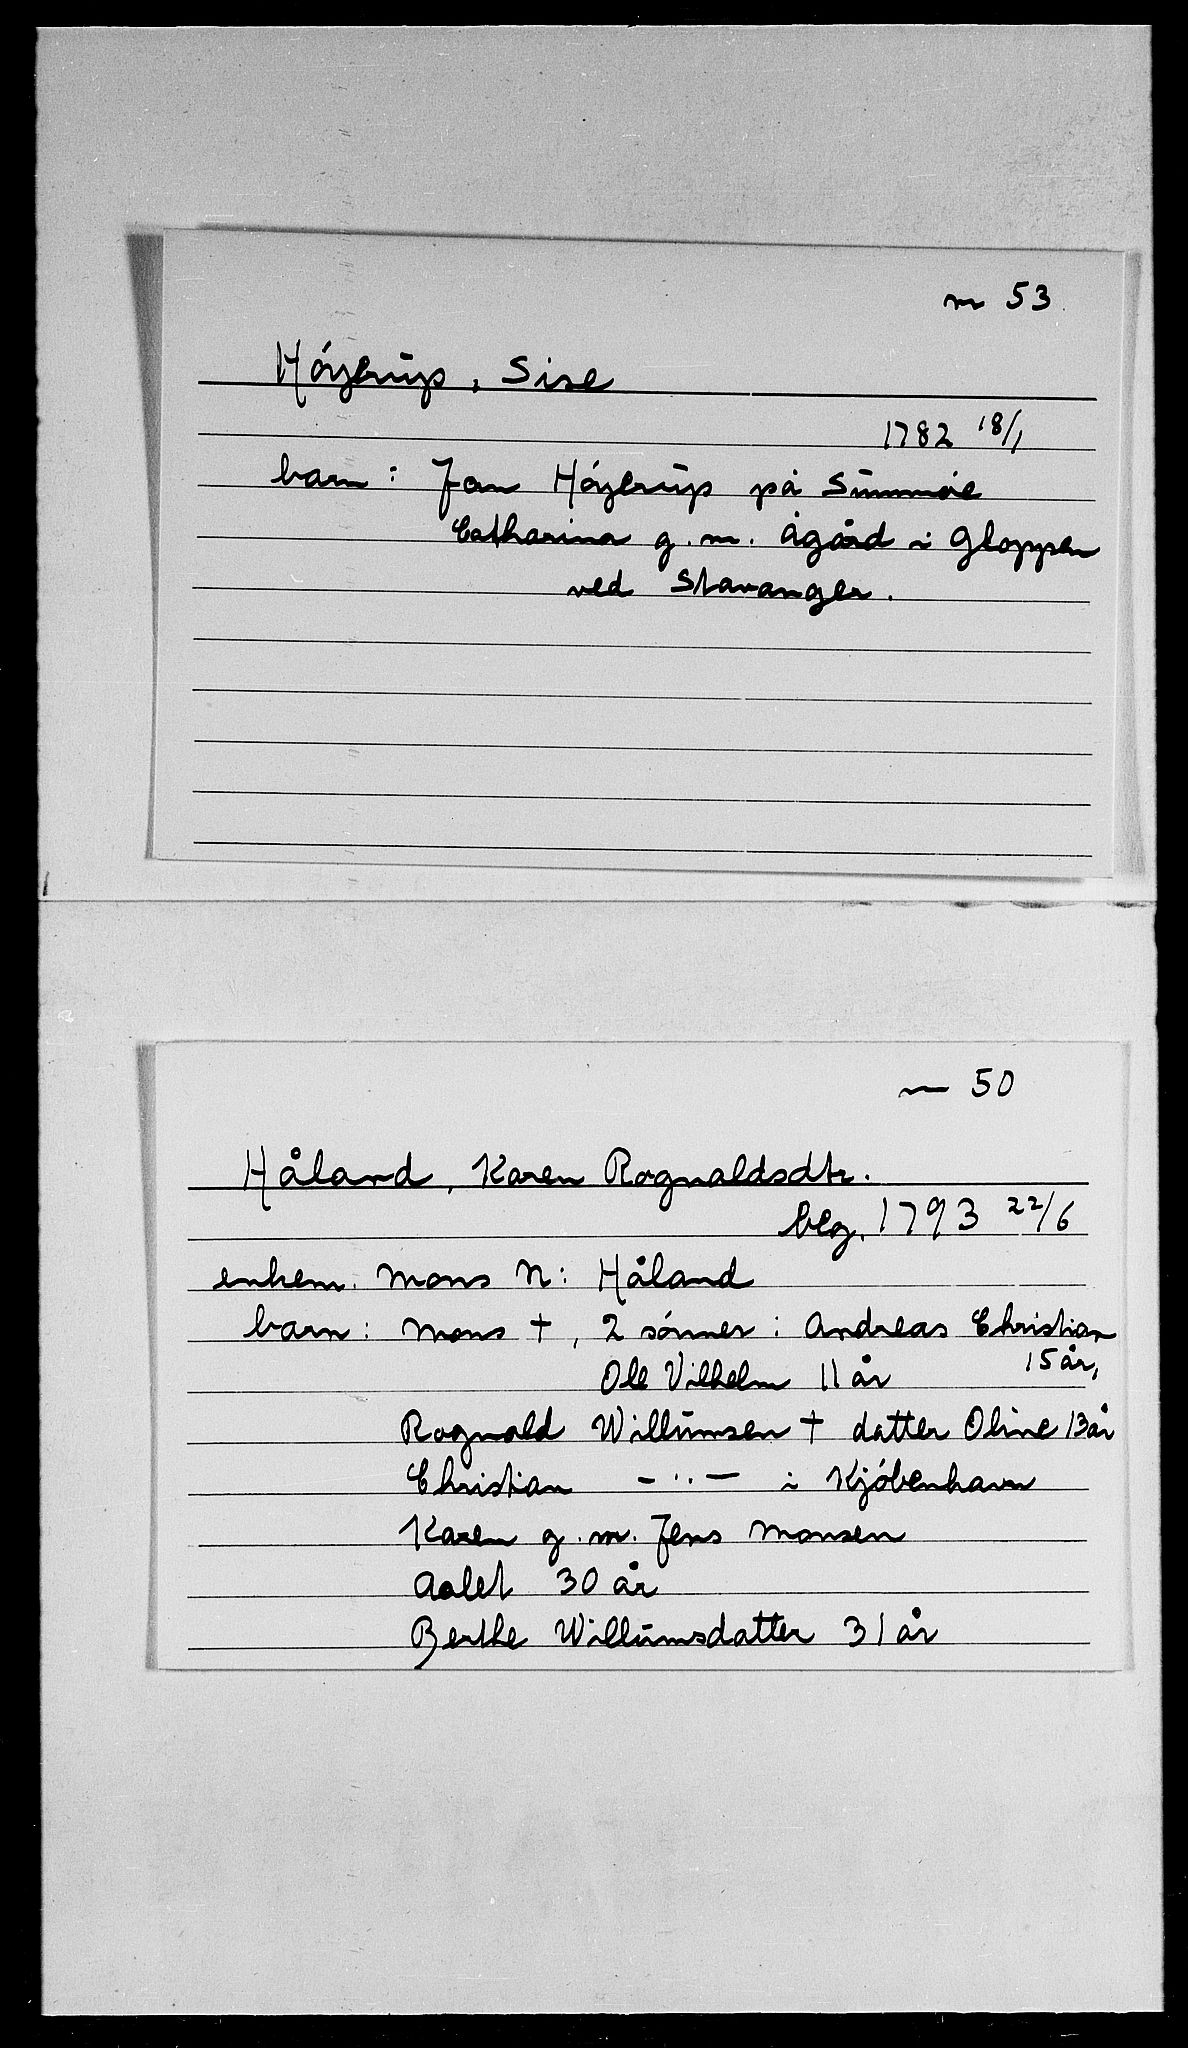 m 53
Höyerup, Sise
1782 18/1
barn: Jan Höyerup på Sunmöe
Catharina g. m. Ågård i Gloppen
ved Stavanger.
m 50
Håland, Karen Rognaldsdtr.
beg. 1793 22/6
enkem. Mons N: Håland
barn: Mons †, 2 sönner: Andreas Christian
15 år,
Ole Vilhelm 11 år
Rognald Willumsen † datter Oline 13 år
Christian -..- i Kjöbenhavn
Karen g. m. Jens Monsen
Aalet 30 år
Berthe Willumsdatter 31 år